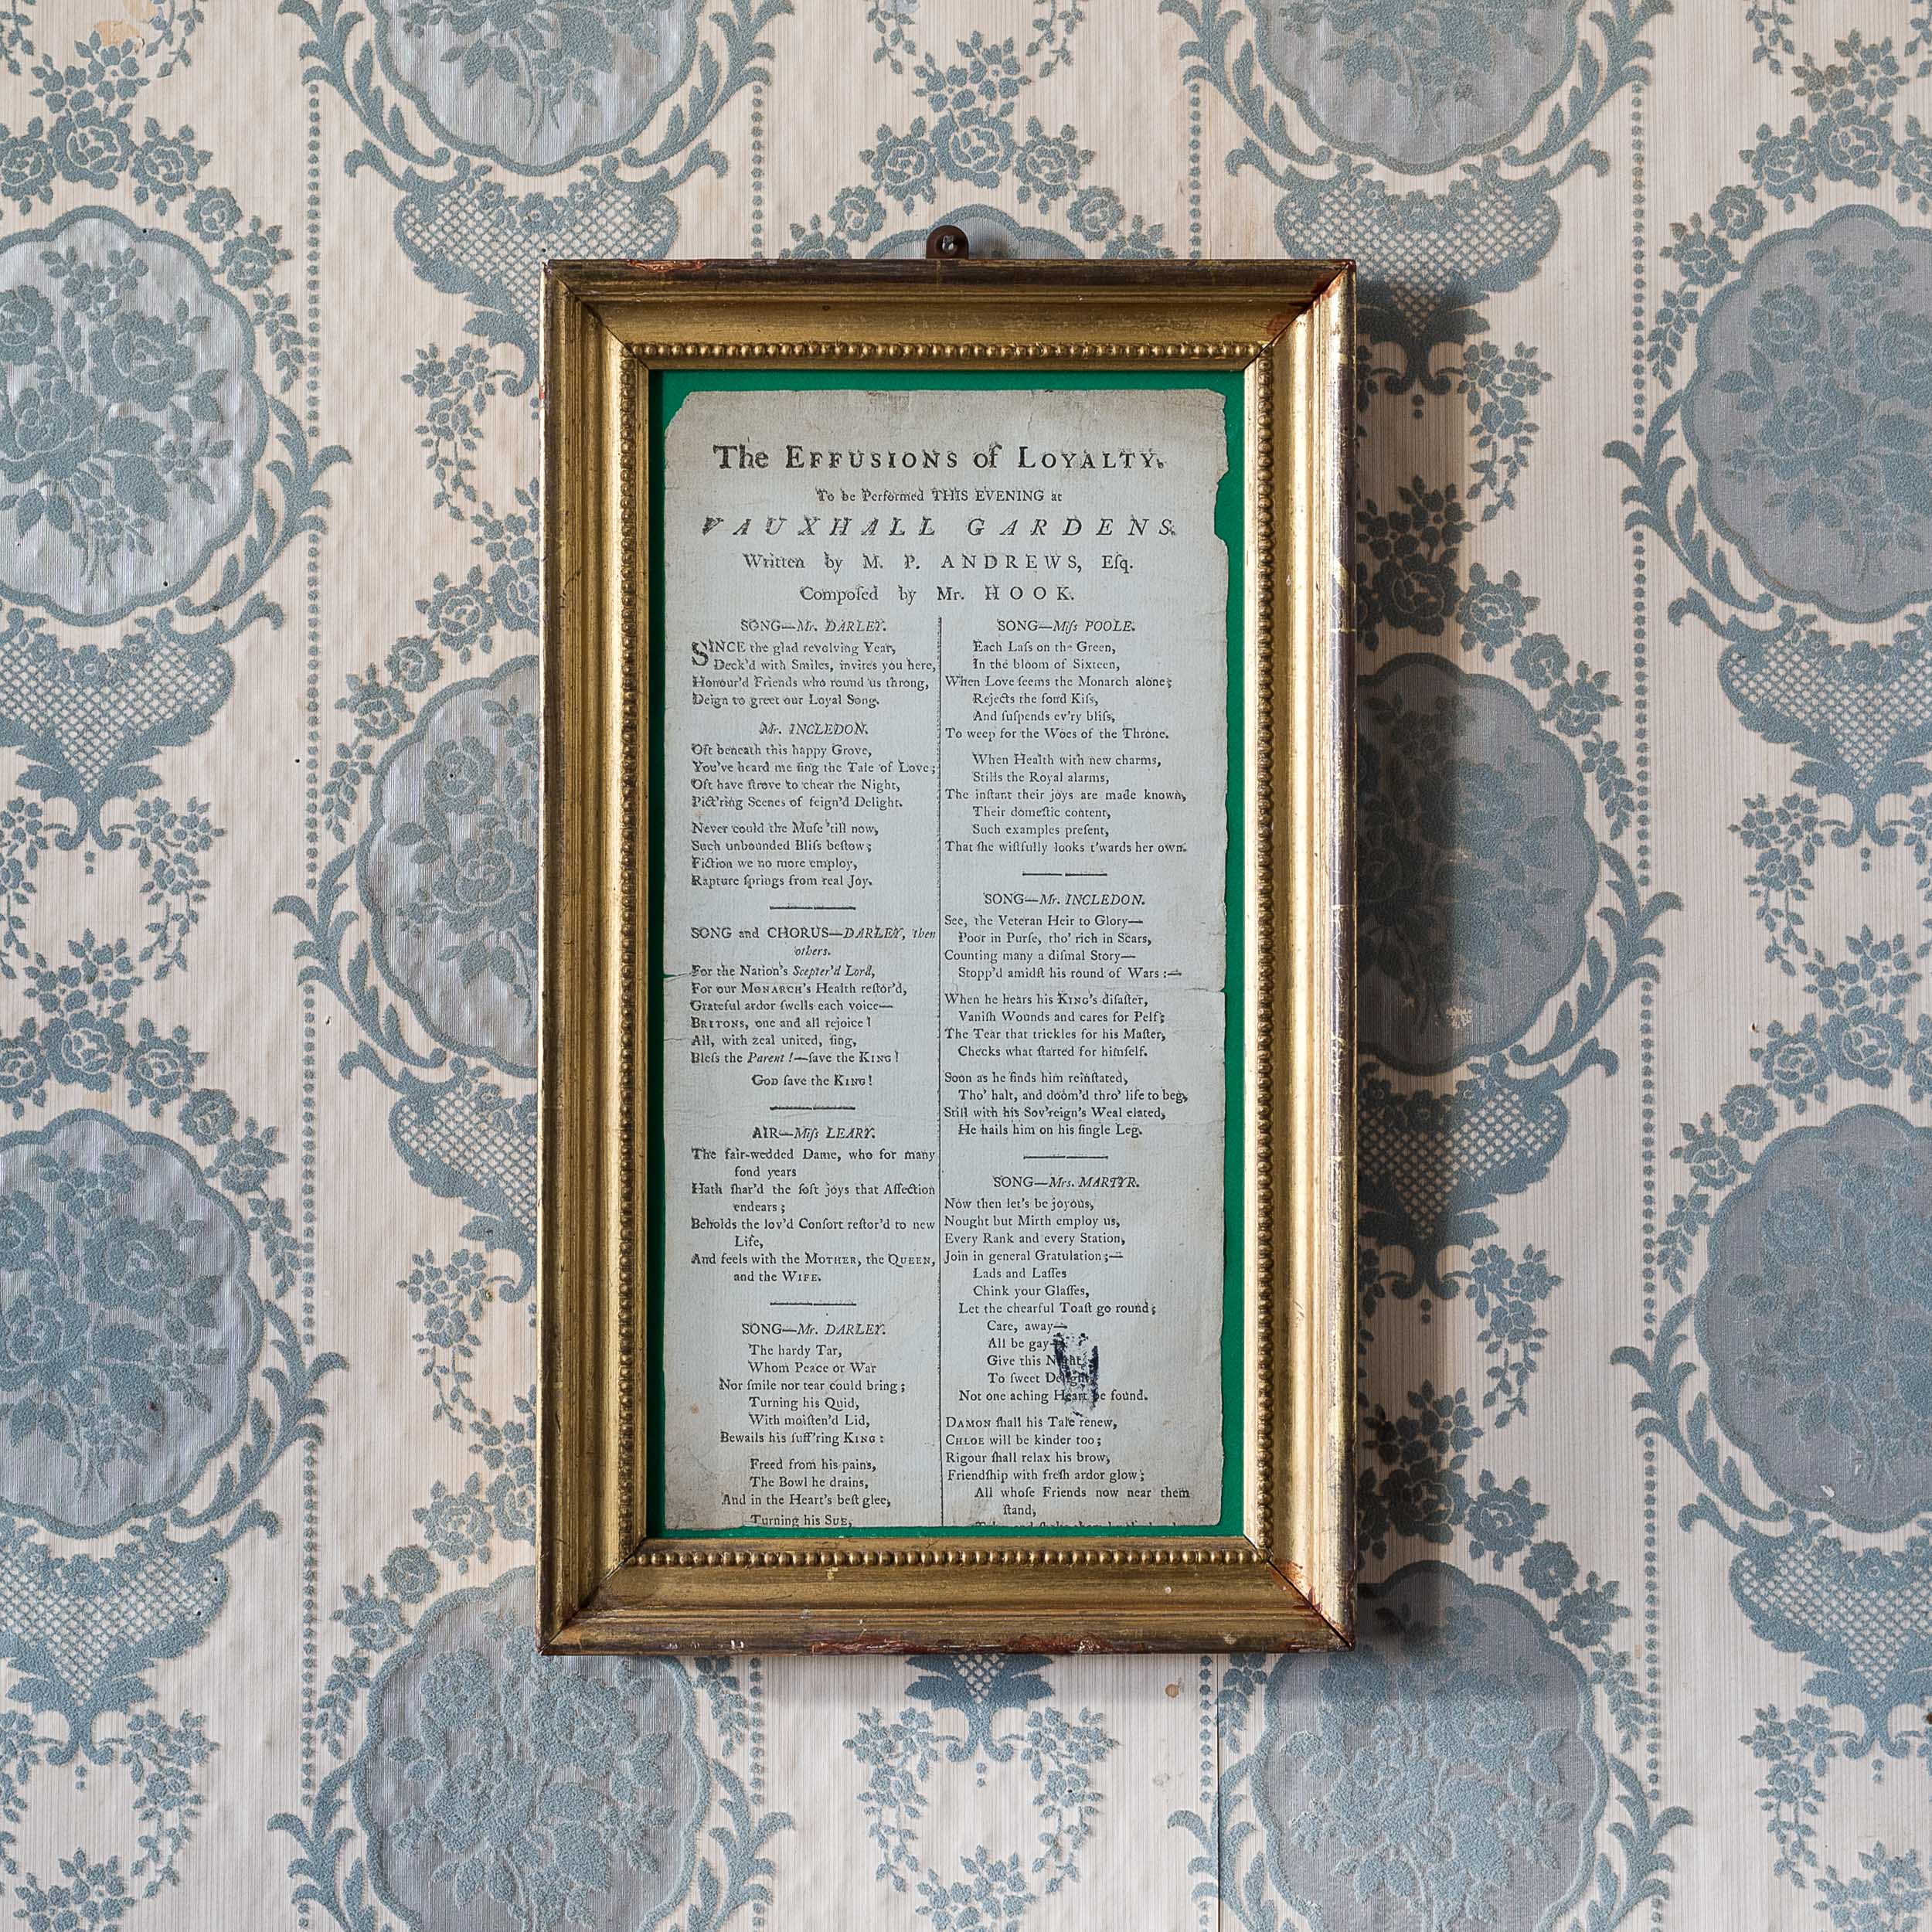 The EFFUSIONS of LOYALTY.
To be Performed THIS EVENING at
VAUXHALL GARDENS.
Written by M. P. ANDREWS, Eſq.
Compoſed by Mr. HOOK.
SONG—Mr. DARLEY.
SINCE the glad revolving Year,
Deck'd with Smiles, invites you here,
Honour'd Friends who round us throng,
Deign to greet our Loyal Song.
Mr. INCLEDON.
Oft beneath this happy Grove,
You've heard me ſing the Tale of Love;
Oft have ſtrove to chear the Night,
Pict'ring Scenes of feign'd Delight.
Never could the Muſe 'till now,
Such unbounded Bliſs beſtow;
Fiction we no more employ,
Rapture ſprings from real Joy.
SONG and CHORUS—DARLEY, then
others.
For the Nation's Scepter'd Lord,
For our MONARCH's Health reſtor'd,
Grateful ardor ſwells each voice—
BRITONS, one and all rejoice!
All, with zeal united, ſing,
Bleſs the Parent!—ſave the KING!
GOD ſave the KING!
AIR—Miſs LEARY.
The fair-wedded Dame, who for many
fond years
Hath ſhar'd the ſoft joys that Affection
endears;
Beholds the lov'd Conſort reſtor'd to new
Life,
And feels with the MOTHER, the QUEEN,
and the WIFE.
SONG—Mr. DARLEY.
The hardy Tar,
Whom Peace or War
Nor ſmile nor tear could bring;
Turning his Quid,
With moiſten'd Lid,
Bewails his ſuff'ring KING:
Freed from his pains,
The Bowl he drains,
And in the Heart's beſt glee,
Turning his SUE,
SONG—Miſs POOLE.
Each Laſs on the Green,
In the bloom of Sixteen,
When Love ſeems the Monarch alone;
Rejects the fond Kiſs,
And ſuſpends ev'ry bliſs,
To weep for the Woes of the Throne.
When Health with new charms,
Stills the Royal alarms,
The inſtant their joys are made known,
Their domeſtic content,
Such examples preſent,
That ſhe wiſtfully looks t'wards her own.
SONG—Mr. INCLEDON.
See, the Veteran Heir to Glory—
Poor in Purſe, tho' rich in Scars,
Counting many a diſmal Story—
Stopp'd amidſt his round of Wars:—
When he hears his KING's diſaſter,
Vaniſh Wounds and cares for Pelf;
The Tear that trickles for his Maſter,
Checks what ſtarted for himſelf.
Soon as he finds him reinſtated,
Tho' halt, and doom'd thro' life to beg,
Still with his Sov'reign's Weal elated,
He hails him on his ſingle Leg.
SONG—Mrs. MARTYR.
Now then let's be joyous,
Nought but Mirth employ us,
Every Rank and every Station,
Join in general Gratulation;—
Lads and Laſſes
Chink your Glaſſes,
Let the chearful Toaſt go round;
Care, away—
All be gay—
Give this Night
To ſweet Delight
Not one aching Heart be found.
DAMON ſhall his Tale renew,
CHLOE will be kinder too;
Rigour ſhall relax his brow,
Friendſhip with freſh ardor glow;
All whoſe Friends now near them
ſtand,